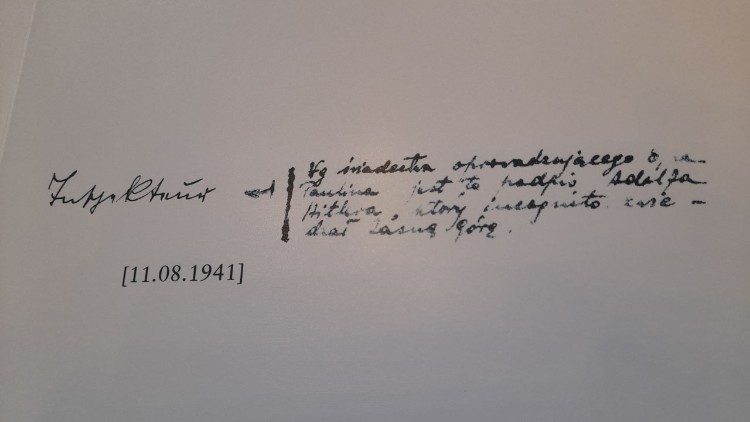 Inspekteur →
Wg świadectwa oprowadzającego O, za-
Paulina jest to podpis Adolfa
Hitlera, który incognito zwie-
dzał Jasną Górę.
[11.08.1941]